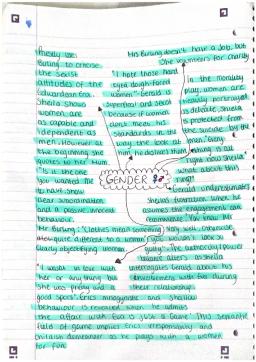 Priestly uses
Birling to criticise
the sexist
attitudes of the
Edwardian Era.
Sheila shows
women are
as capable and
independent as
men. However at
the beginning she
quotes to her Mum
"is it the one
you wanted me
to have" show
clear subordination
and a passive innocent
behaviour.
Mrs Birling doesn't have a job, but
she volunteers for charity
"I hate those hard
eyed dough-faced
women" - Gerald is
superficial and sexist
because if women
don't meet his
standards in the
way they look at
him, he detracts them
In the morality
play, women are
usually portrayed
as delicate, Sheila
is protected from
the suicide by the
men. Gerry
"nothing is all
right now Sheila"
"what about this
ring?"
GENDER
Gerald underestimates
Sheila's function when he
assumes the engagement can
"You know Mr
Mr Birling: "Clothes mean something
quite different to a woman"
clearly objectifying women
very well,
you wouldn't
The authority/power
balance alters as Sheila
interrogates Gerald about his
involvement with Eva during
their relationship.
"I wasn't in love with
her or anything but
she was pretty and a
good sport" Eric's misogynistic and shallow
behaviour is revealed when he admits
the affair with Eva is just a 'game'. This semantic
field of game implies Eric's irresponsibility and
childish demeanor as he plays with a women
for fun.